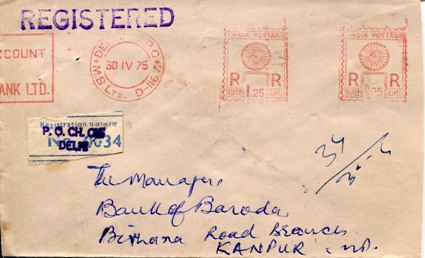 REGISTERED
CCOUNT
ANK LTD.
30 IV 75
M.B LTD. D-116
INDIA POSTAGE
R R
1.25
INDIA POSTAGE
R R
1.25
Registration
P. O. CH. CHK
DELHI
No. 0034
The Manager
Bank of Baroda
Birhana Road Branch
KANPUR